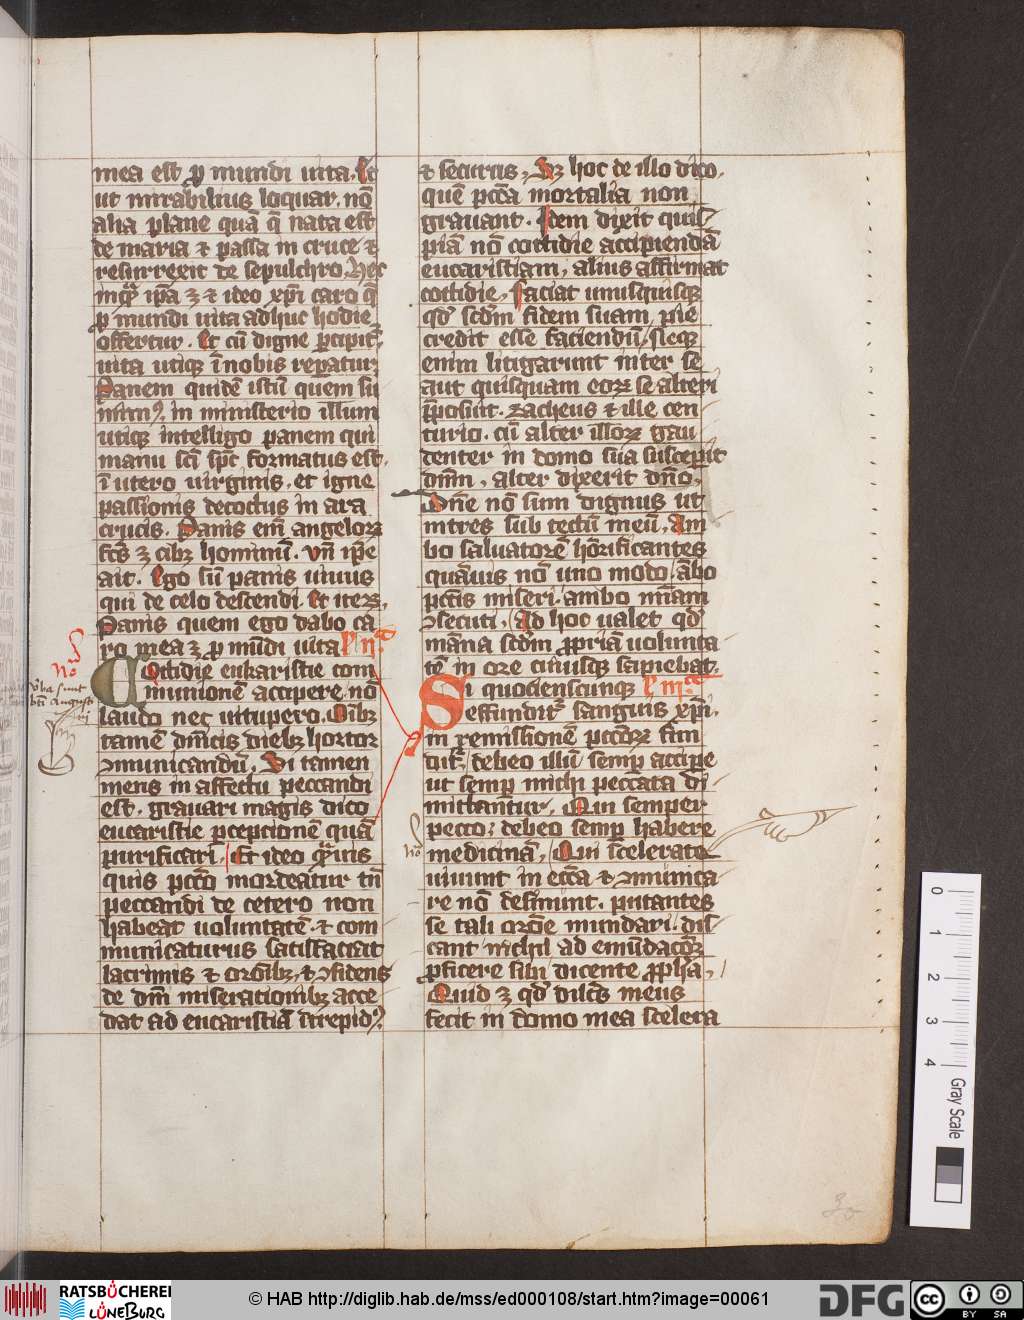 mea est ꝑ mundi uita. Et
ut mirabilius loquar. nō
alia plane quā q̄ nata est
de maria ⁊ passa in cruce ⁊
resurrexit de sepulchro. Hec
inquā ipā ꝫ ⁊ ideo xp̄i caro q̄
ꝑ mundi uita adhuc hodie
offertur. Et cū digne ꝑcipit᷑
uita utiqꝫ ī nobis reparatur
Panem quidē istū quem su
mimꝰ. in ministerio illum
utiqꝫ intelligo panem qui
manu sc̄i sp̄c formatus est.
ī utero uirginis. et igne
passionis decoctus in ara
crucis. Panis em̄ angeloꝝ
fc̄s ꝫ cibꝫ hominū. vn̄ ip̄e
ait. Ego sū panis uiuus
qui de celo descendi. Et iteꝝ.
Panis quem ego dabo ca
ro mea ꝫ ꝑ mūdi uita
Cottidie eukaristie com
munionē accipere. nō
laudo nec uitupero. Oībꝫ
tamē dn̄icis diebꝫ hortor
ꝯmunicandū. Si tamen
mens in affectu peccandi
est. grauari magis dico
eucaristie ꝑceptionē quā
purificari. Et ideo quāuis
quis pctō mordeatur tn̄
peccandi de cetero non
habeat uoluntatē. ⁊ com
municaturus satisfaciat
lacrimis ⁊ orōibꝫ. ⁊ ꝯfidens
de dn̄i miserationibꝫ acce
dat ad eucaristiā ītrepidꝰ.
⁊ securus. Sꝫ hoc de illo dico.
quē pctā mortalia non
grauant. Item dixit quis
piā nō cottidie accipiendā
eucaristiam. alius affirmat
cottidie. faciat unusquisqꝫ
qd̄ scd̄m fidem suam pie
credit esse faciendū. Neqꝫ
enim litigarunt inter se
aut quisquam eoꝝ se alteri
p̄posuit. Zacheus ⁊ ille cen
turio. cū alter illoꝝ gau
denter in domo sua susceperit
dn̄m. alter dixerit dn̄o.
Dn̄e nō sum dignus ut
intres sub tectū meū. Am
bo saluatorē hōrificantes
quāuis nō uno modo. ābo
pctīs miseri. ambo mīam
ꝯsecuti. Ad hoc ualet qd̄
māna scd̄m ꝓpriā uolunta
tē in ore cuiusqꝫ sapiebat.
Si quocienscunqꝫ
effundit᷑ sanguis xp̄i.
in remissionē pctōꝝ fun
dit᷑. debeo illū semꝑ accipe
ut semꝑ michi peccata di
mittantur. Qui semper
pecco. debeo semꝑ habere
medicinā. Qui scelerate
uiuunt in ecc̄a ⁊ ꝯmunica
re nō desinunt. putantes
se tali orōie mundari. dis
cant nichil ad emūdacōꝫ
ꝓficere sibi dicente ꝓph̄a.
Quid ꝫ qd̄ dilc̄s meus
fecit in domo mea scelera
v̄ba sunt
bt̄i Augusti
0
1
2
3
4
Gray Scale
30
RATSBÜCHEREI
LÜNEBURG
© HAB http://diglib.hab.de/mss/ed000108/start.htm?image=00061
DFG
cc
BY SA